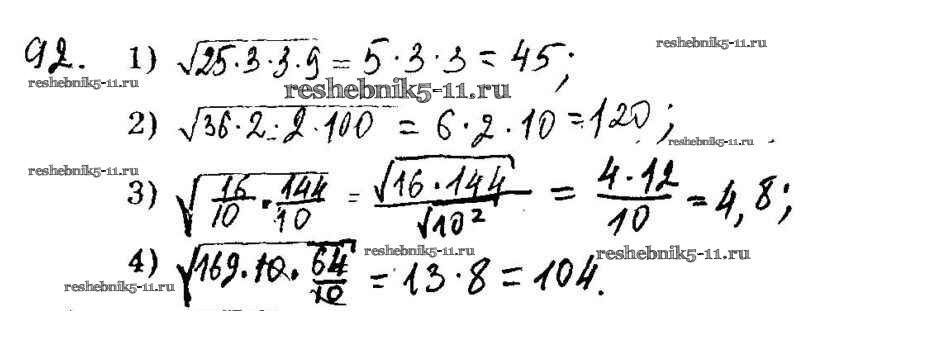 92. 1) √25·3·3·9 = 5·3·3 = 45;
reshebnik5-11.ru
reshebnik5-11.ru
reshebnik5-11.ru
2) √36·2·2·100 = 6·2·10 = 120;
reshebnik5-11.ru
reshebnik5-11.ru
3) √16/10 · 144/10 = √16·144/√10² = 4·12/10 = 4,8;
reshebnik5-11.ru
reshebnik5-11.ru
4) √169·10·64/10 = 13·8 = 104.
reshebnik5-11.ru